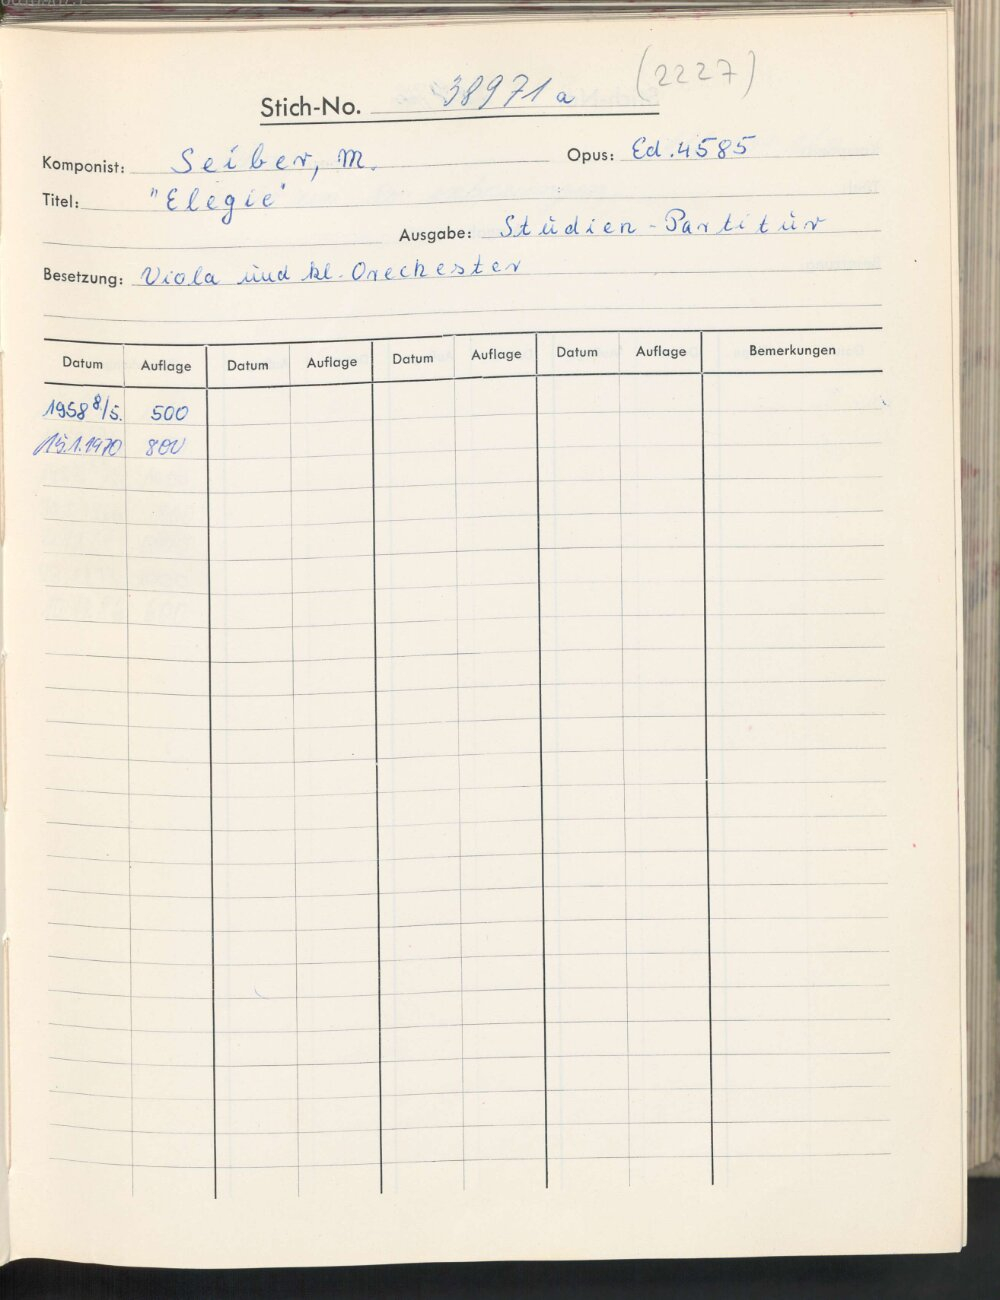 (2227)
Stich-No. 38971 a
Komponist: Seiber, M. Opus: Ed. 4585
Titel: "Elegie"
Ausgabe: Studien-Partitur
Besetzung: Viola und kl. Orechester
Datum Auflage Datum Auflage Datum Auflage Datum Auflage Bemerkungen
1958 8/5. 500
15.1.1970 800